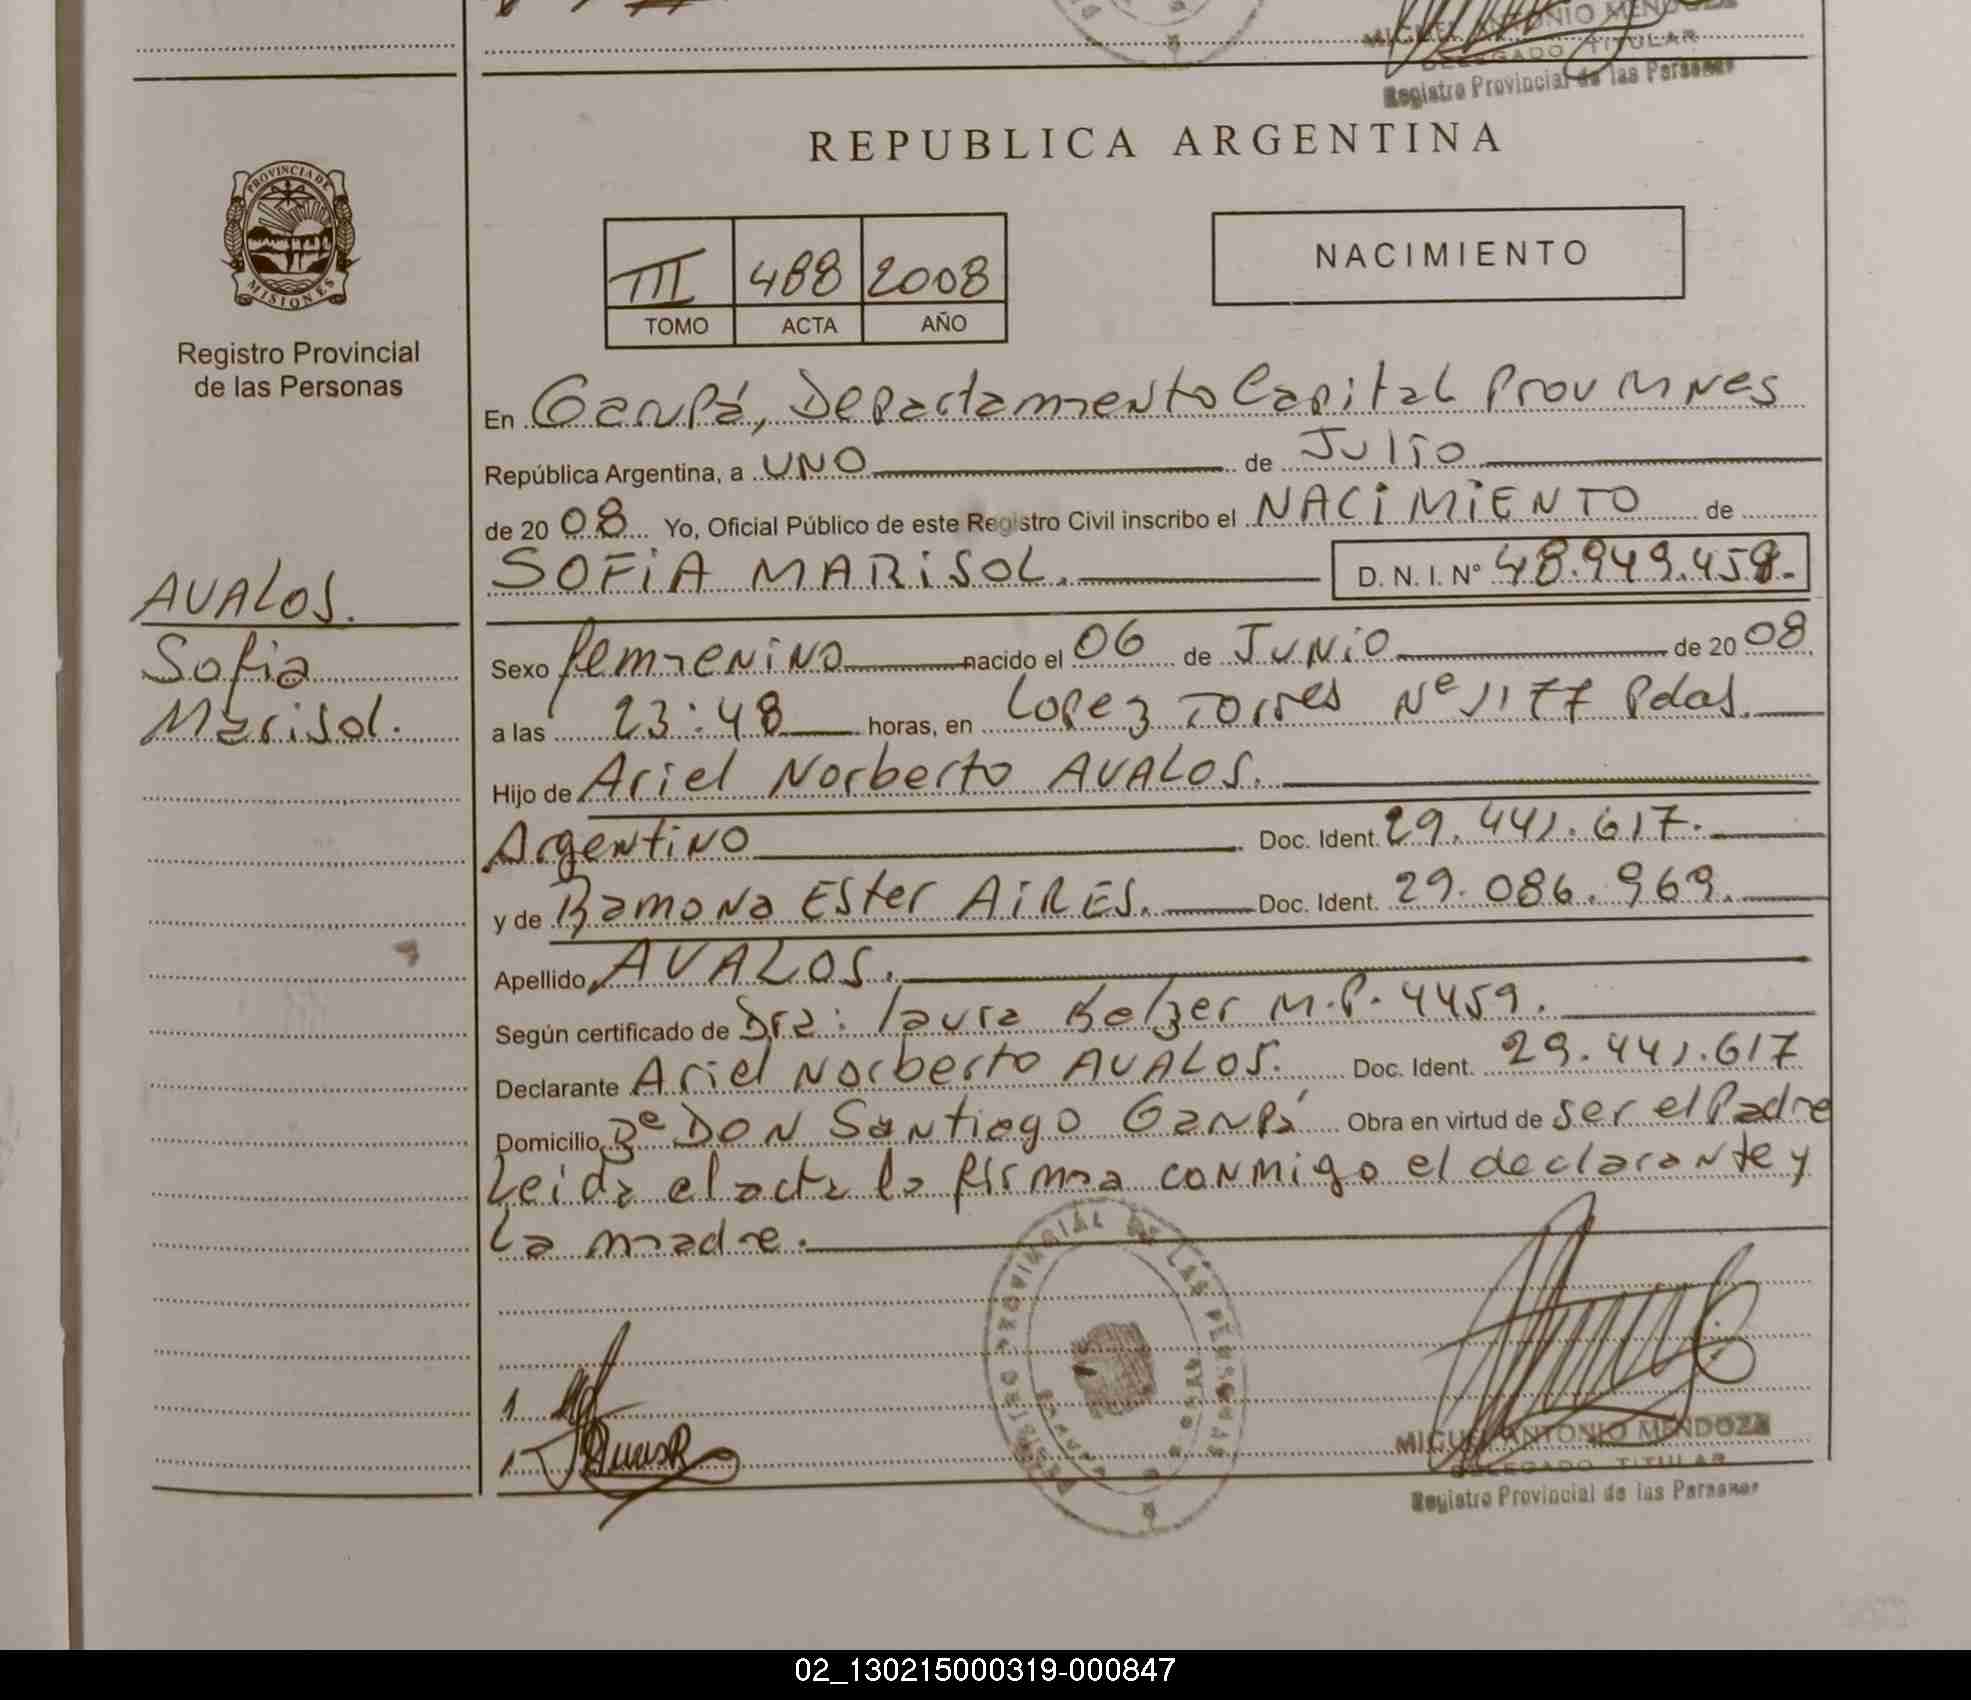 MIGUEL ANTONIO MENDOZA
DELEGADO TITULAR
Registro Provincial de las Personas
REPUBLICA ARGENTINA
PROVINCIA DE
MISIONES
Registro Provincial
de las Personas
III 488 2008
TOMO ACTA AÑO
NACIMIENTO
En Garupá, Departamento Capital Prov Mnes
República Argentina, a UNO de Julio
de 20 08 Yo, Oficial Público de este Registro Civil inscribo el NACIMIENTO de
SOFIA MARISOL. D. N. I. Nº 48.949.459.
AVALOS.
Sofia
Marisol.
Sexo femenino nacido el 06 de JUNIO de 20 08
a las 23:48 horas, en Lopez Torres Nº 1177 Pdas.
Hijo de Ariel Norberto AVALOS.
Argentino Doc. Ident. 29.441.617.
y de Ramona Ester AIRES. Doc. Ident. 29.086.969.
Apellido AVALOS.
Según certificado de Dra: Laura Kelzer M.P. 4459.
Declarante Ariel Norberto AVALOS. Doc. Ident. 29.441.617
Domicilio Bº DON Santiago Garupá Obra en virtud de ser el Padre
Leida el acta la firma conmigo el declarante y
la madre.
REGISTRO PROVINCIAL DE LAS PERSONAS
1
1
MIGUEL ANTONIO MENDOZA
DELEGADO TITULAR
Registro Provincial de las Personas
02_130215000319-000847